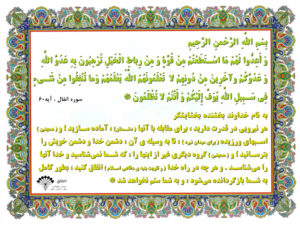 بِسْمِ اللَّهِ الرَّحْمنِ الرَّحِيمِ
وَ أَعِدُّوا لَهُمْ مَا اسْتَطَعْتُمْ مِنْ قُوَّةٍ وَ مِنْ رِبَاطِ الْخَيْلِ تُرْهِبُونَ بِهِ عَدُوَّ اللَّهِ
وَ عَدُوَّكُمْ وَ آخَرِينَ مِنْ دُونِهِمْ لَا تَعْلَمُونَهُمُ اللَّهُ يَعْلَمُهُمْ وَمَا تُنْفِقُوا مِنْ شَيْءٍ
فِي سَبِيلِ اللَّهِ يُوَفَّ إِلَيْكُمْ وَ أَنْتُمْ لَا تُظْلَمُونَ
سوره انفال . آیه۶۰
به نام خداوند بخشنده بخشایشگر
هر نیرویی در قدرت دارید ، برای مقابله با آنها (دشمنان) ، آماده سازید ! و (همچنین)
اسبهای ورزیده (برای میدان نبرد) ، تا به وسیله ی آن ، دشمن خدا و دشمن خویش را
بترسانید ! و (همچنین) گروه دیگری غیر از اینها را ، که شما نمی‌شناسید و خدا آنها
را می‌شناسد . و هر چه در راه خدا (و تقویت بنیه ی دفاعی اسلام) انفاق کنید ، بطور کامل
به شما بازگردانده می‌شود ، و به شما ستم نخواهد شد